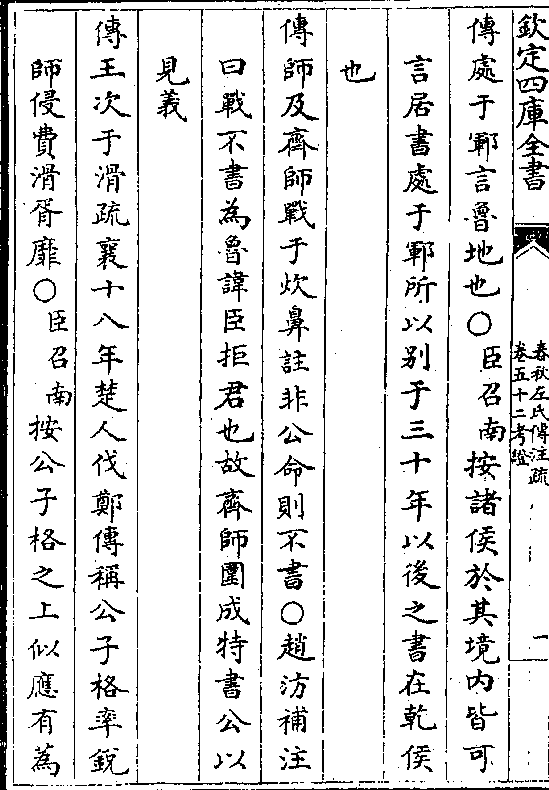 欽定四庫全書
春秋左氏傳注疏
卷五十二考證
一
傳處于鄆言魯地也〇臣召南按諸侯於其境内皆可
言居書處于鄆所以别于三十年以後之書在乾侯
也
傳師及齊師戰于炊鼻註非公命則不書〇趙汸補注
曰戰不書為魯諱臣拒君也故齊師圍成特書公以
見義
傳王次于滑疏襄十八年楚人伐鄭傳稱公子格率銳
師侵費滑胥靡〇臣召南按公子格之上似應有為